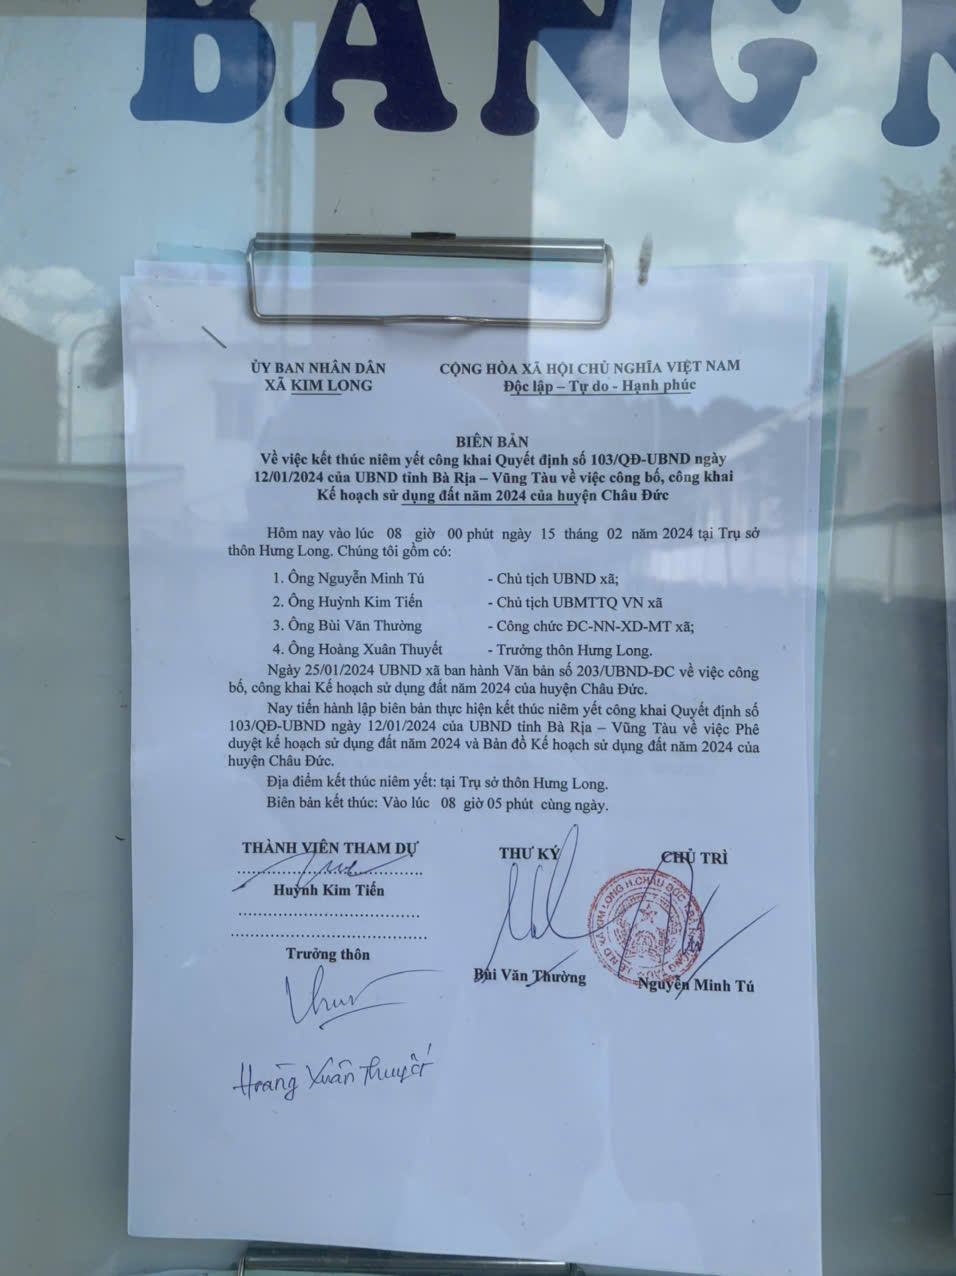 BẢNG
ỦY BAN NHÂN DÂN
XÃ KIM LONG
CỘNG HÒA XÃ HỘI CHỦ NGHĨA VIỆT NAM
Độc lập – Tự do - Hạnh phúc
BIÊN BẢN
Về việc kết thúc niêm yết công khai Quyết định số 103/QĐ-UBND ngày
12/01/2024 của UBND tỉnh Bà Rịa – Vũng Tàu về việc công bố, công khai
Kế hoạch sử dụng đất năm 2024 của huyện Châu Đức
Hôm nay vào lúc 08 giờ 00 phút ngày 15 tháng 02 năm 2024 tại Trụ sở
thôn Hưng Long. Chúng tôi gồm có:
1. Ông Nguyễn Minh Tú - Chủ tịch UBND xã;
2. Ông Huỳnh Kim Tiến - Chủ tịch UBMTTQ VN xã
3. Ông Bùi Văn Thường - Công chức ĐC-NN-XD-MT xã;
4. Ông Hoàng Xuân Thuyết - Trưởng thôn Hưng Long.
Ngày 25/01/2024 UBND xã ban hành Văn bản số 203/UBND-ĐC về việc công
bố, công khai Kế hoạch sử dụng đất năm 2024 của huyện Châu Đức.
Nay tiến hành lập biên bản thực hiện kết thúc niêm yết công khai Quyết định số
103/QĐ-UBND ngày 12/01/2024 của UBND tỉnh Bà Rịa – Vũng Tàu về việc Phê
duyệt kế hoạch sử dụng đất năm 2024 và Bản đồ Kế hoạch sử dụng đất năm 2024 của
huyện Châu Đức.
Địa điểm kết thúc niêm yết: tại Trụ sở thôn Hưng Long.
Biên bản kết thúc: Vào lúc 08 giờ 05 phút cùng ngày.
THÀNH VIÊN THAM DỰ
THƯ KÝ
CHỦ TRÌ
Huỳnh Kim Tiến
Trưởng thôn
Bùi Văn Thường
Nguyễn Minh Tú
Hoàng Xuân Thuyết